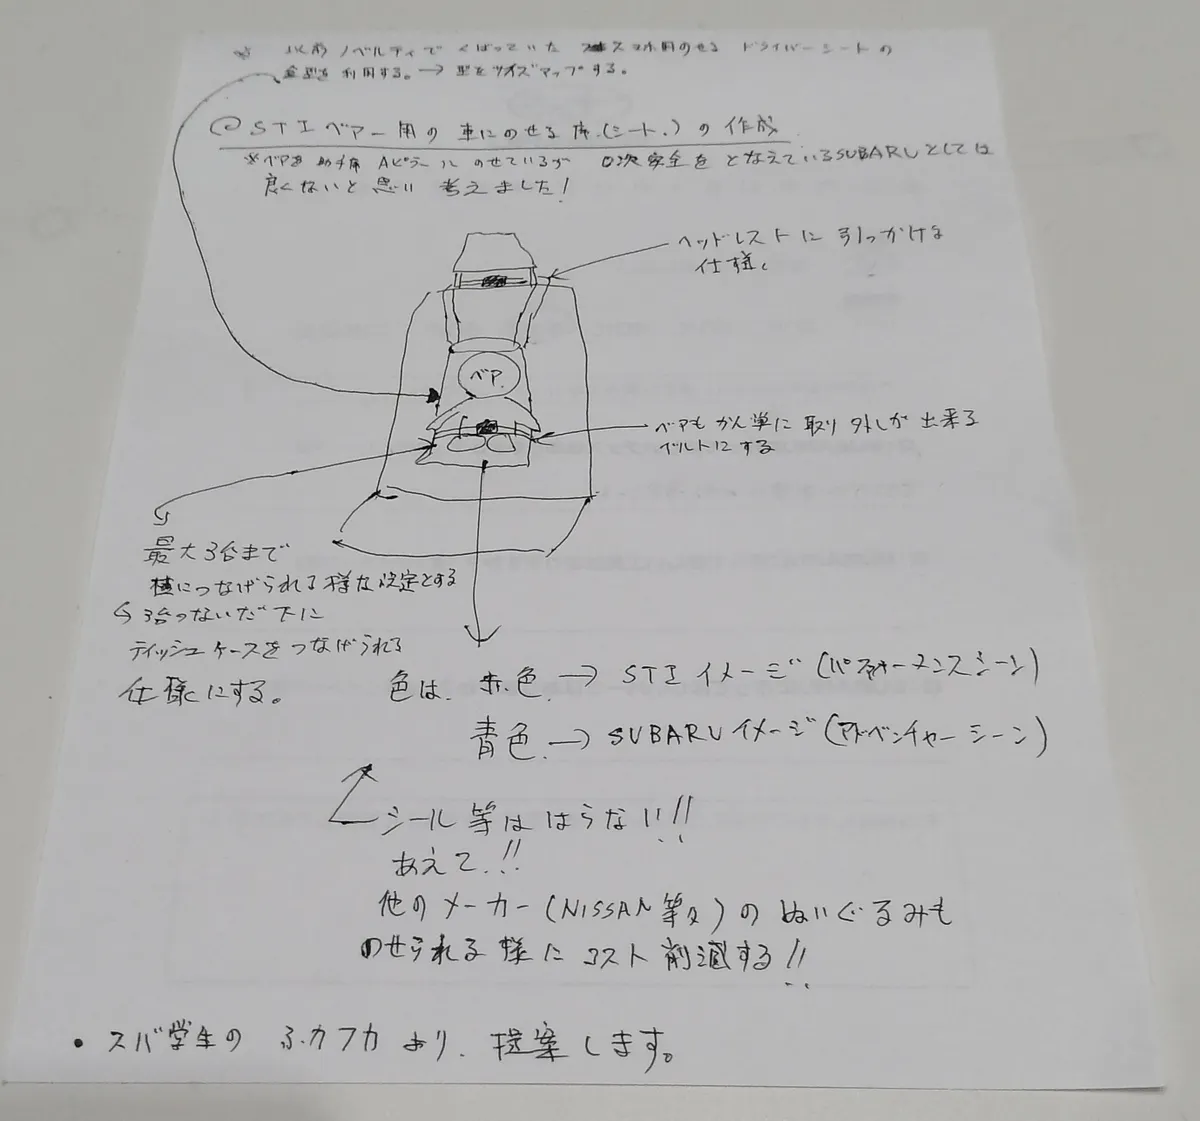 以前ノベルティでくばっていた スマホ用のせる ドライバーシートの
金型を利用する。→ 型をサイズマップする。
◎STIベアー用の車にのせる席(シート)の作成
※ベアを助手席Aピラーにのせているが 0次安全をとなえているSUBARUとしては
良くないと思い 考えました!
ヘッドレストに引っかける
仕様。
ベア
ベアもかん単に取り外しが出来る
ベルトにする
最大3台まで
横につなげられる様な設定とする
↳3台つないだ下に
ティッシュケースをつなげられる
仕様にする。
色は、赤色 → STIイメージ(パフォーマンスシーン)
青色 → SUBARUイメージ(アドベンチャーシーン)
シール等ははらない!!
あえて!!
他のメーカー(NISSAN等々)のぬいぐるみも
のせられる様にコスト削減する!!
・スバ学生の ふカフカより、提案します。